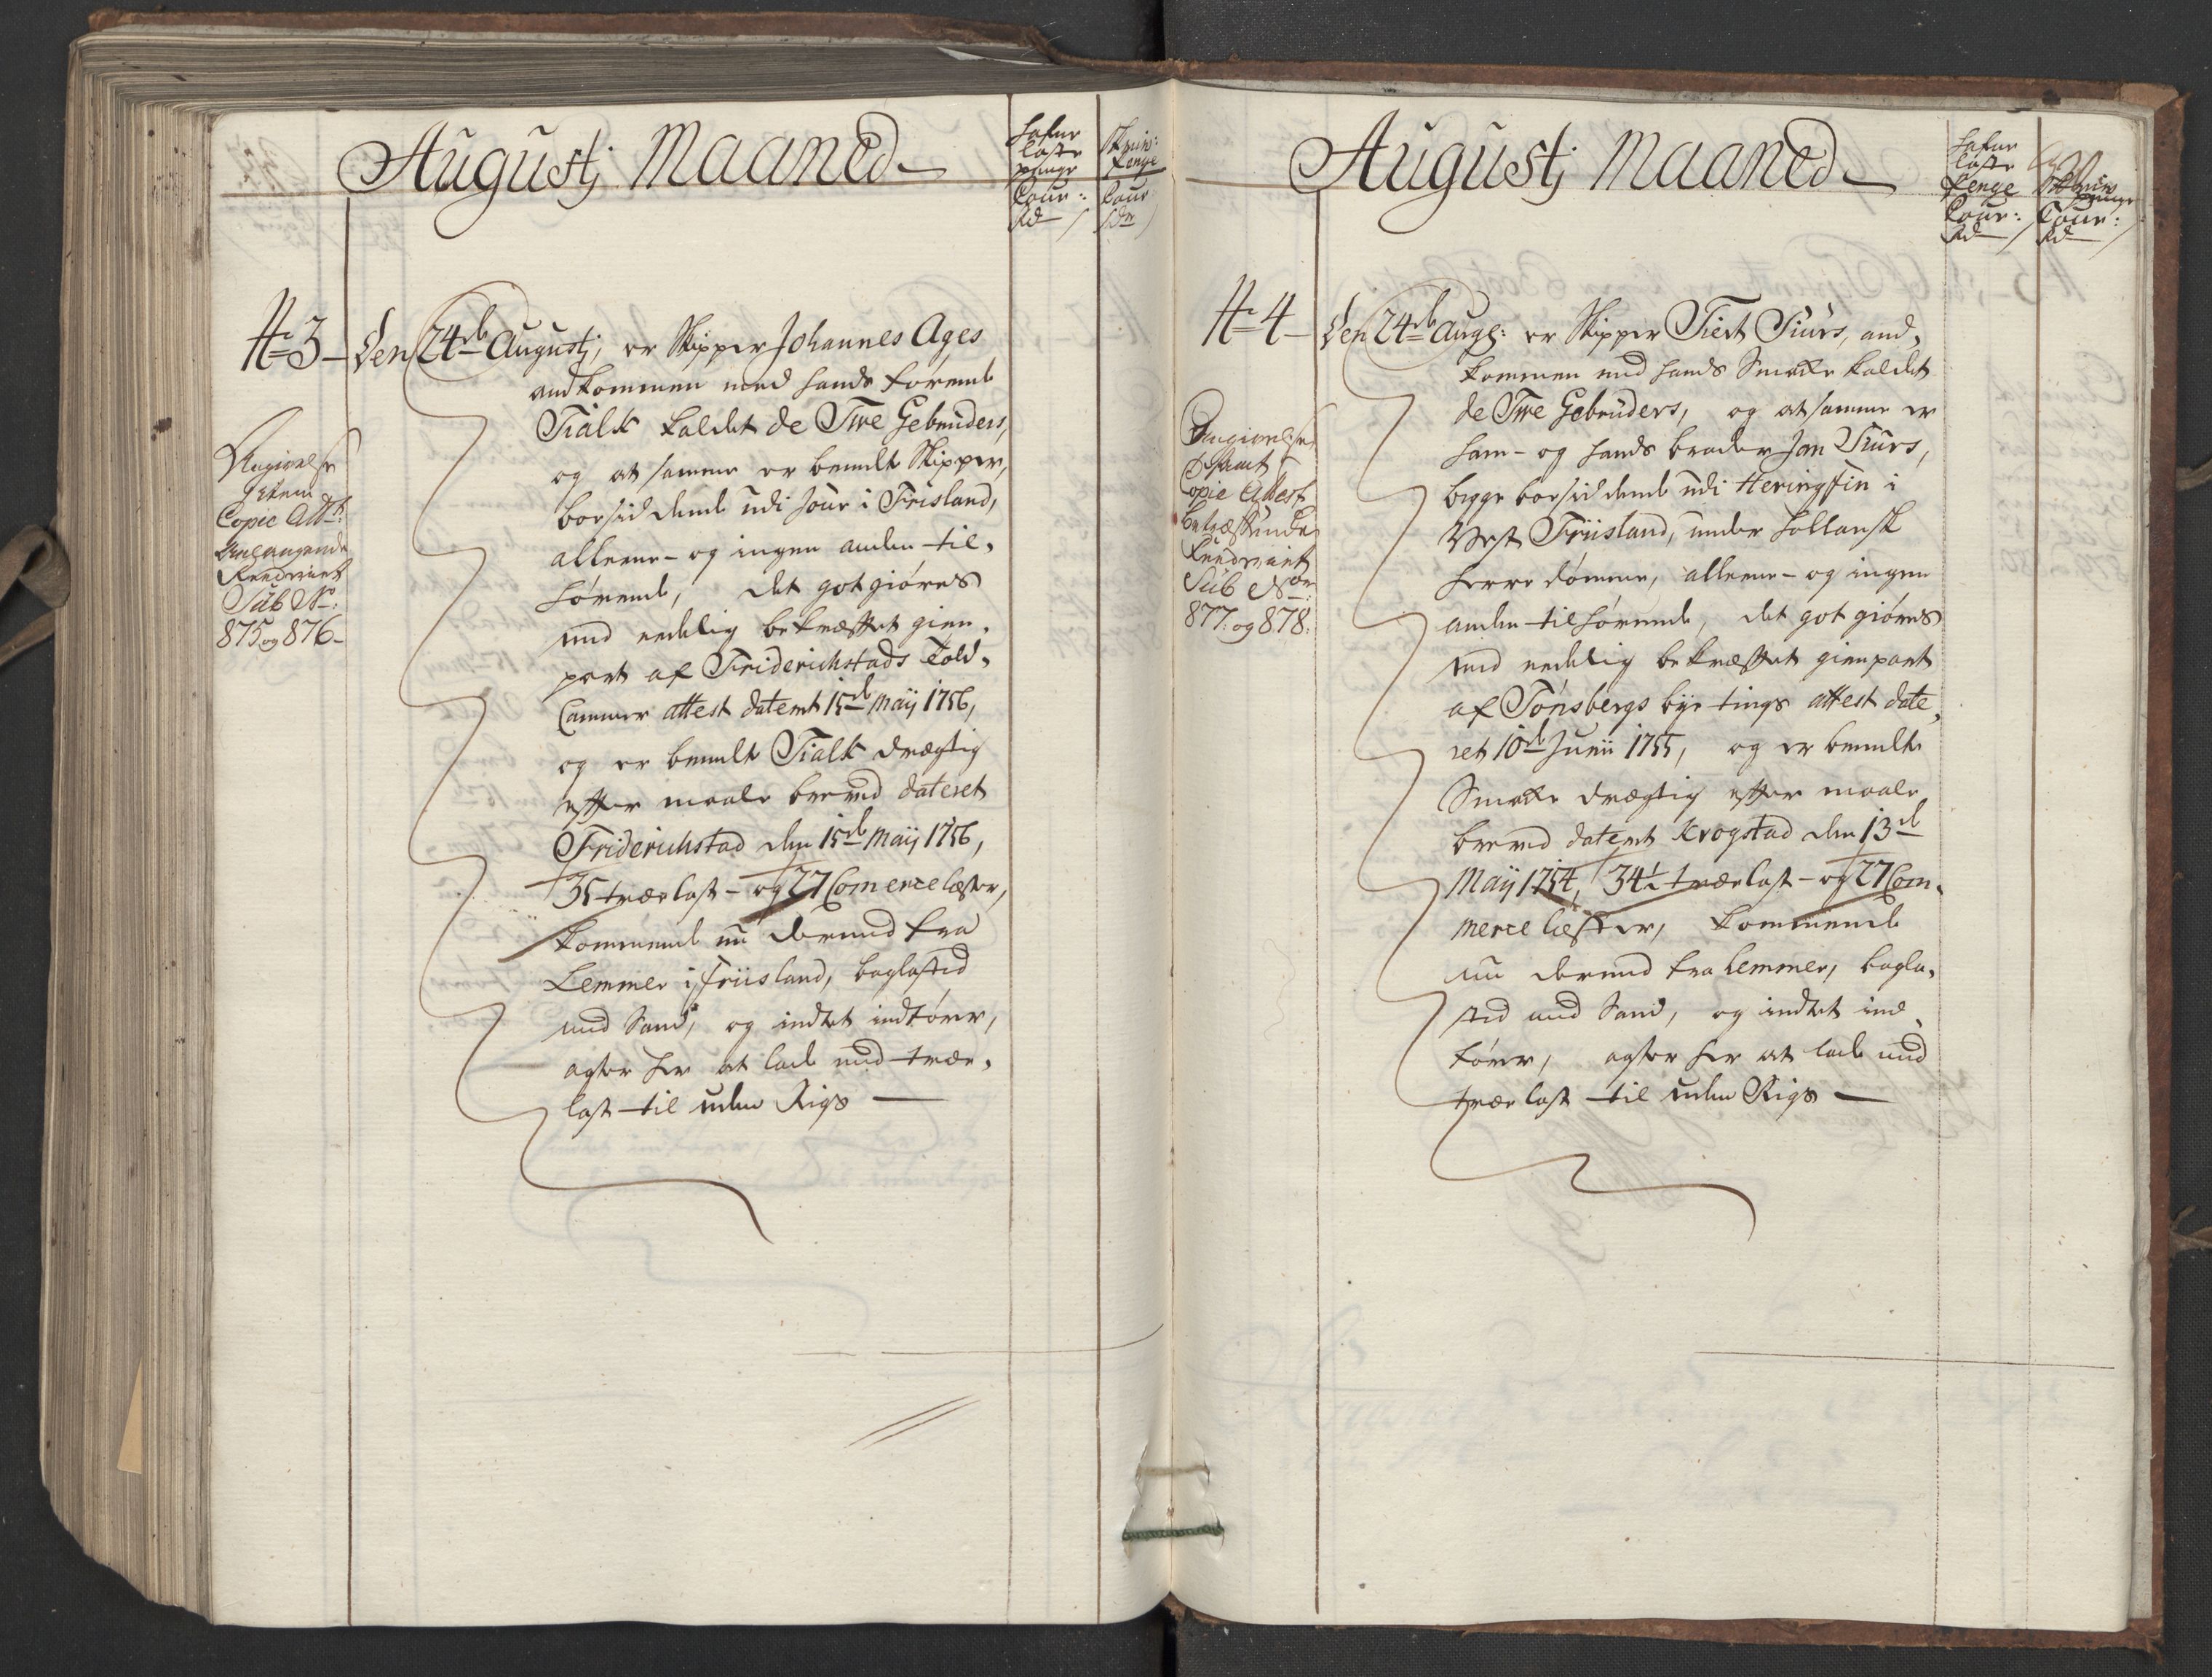 Augustj Maaned
Hafne
laste
penge
Cour:
Rd
Skriv:
penge
Cour
No 3 Den 24de Augustj, er Skipper Johannes Ages
andkommen med hands förende
Tialk kaldet de Twe Gebruders,
og at samme er bemelte Skipper,
boesiddende udi Jour i Frisland,
alleene og ingen anden til,
hörende, det gotgiöres
med redelig bekræfftet gien,
part af Friderichstads Told,
Cammer attest dateret 15de Maij 1756,
og er bemelte Tialk drægtig
effter maale breved dateret
Friderichstad den 15de Maij 1756,
35 trælast og 27 Comercelæster,
kommende nu dermed fra
Lemmer i Friisland, baglasted
med Sand, og indtet indförer,
agter her at lade med træ,
last til uden Rigs
Angivelse
Copie Attst:
Anlangende
Sub No:
875 og 876
Augustj Maaned
Hafne
laste
Penge
Cour:
Rd
Skriv
penge
Cour:
Rd
No 4 Den 24de Augt: er Skipper Tiert Tiurs, and,
kommen med hands Smakke kaldet
de Twe Gebruders, og at samme er
ham og hands broder Jan Tiurs,
begge boesiddende udi Heringfin i
West Friisland, under Hollansk
herre dömme, alleene og ingen
anden tilhörende, det gotgiöres
med redelig bekræfftet gienpart
af Tönsbergs bye tings attest date,
ret 10de Junii 1755, og er bemelte
Smakke drægtig effter maale
breved dateret Krogstad den 13de
Maij 1754, 34½ trælast og 27 Com,
merce læster, kommende
nu dermed fra Lemmer, bagla,
sted med Sand, og indtet ind,
förer, agter her at lade med
trælast til uden Rigs
Angivelse
Copie Attest
Sub No:
877 og 878: